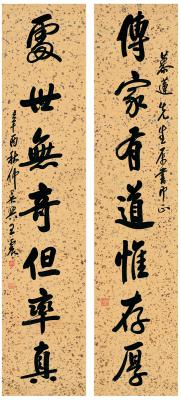 傳家有道惟存厚
慕蓮先生屬書即正
處世無奇但率真
辛酉秋仲吳興王震